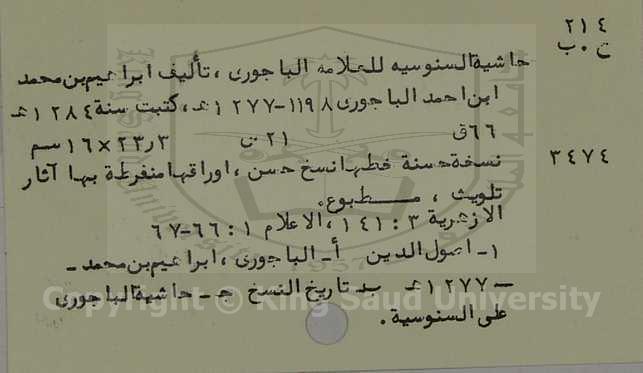 ٢١٤
ح . ب
حاشية السنوسيه للعلامة الباجورى ، تأليف ابراهيم بن محمد
ابن احمد الباجورى ١١٩٨-١٢٧٧هـ ، كتبت سنة ١٢٨٤هـ
٦٦ق ٢١ س ٢٣٫٣×١٦سم
٣٤٧٤
نسخة حسنة خطها نسخ حسن ، اوراقها منفرطة بها آثار
تلويث ، مطبوع .
الازهرية ٣ : ١٤١ ، الاعلام ١ : ٦٦-٦٧
١- اصول الدين أ- الباجورى ، ابراهيم بن محمد -
- ١٢٧٧هـ ب- تاريخ النسخ ج- حاشية الباجورى
على السنوسية .
Copyright © King Saud University
1957